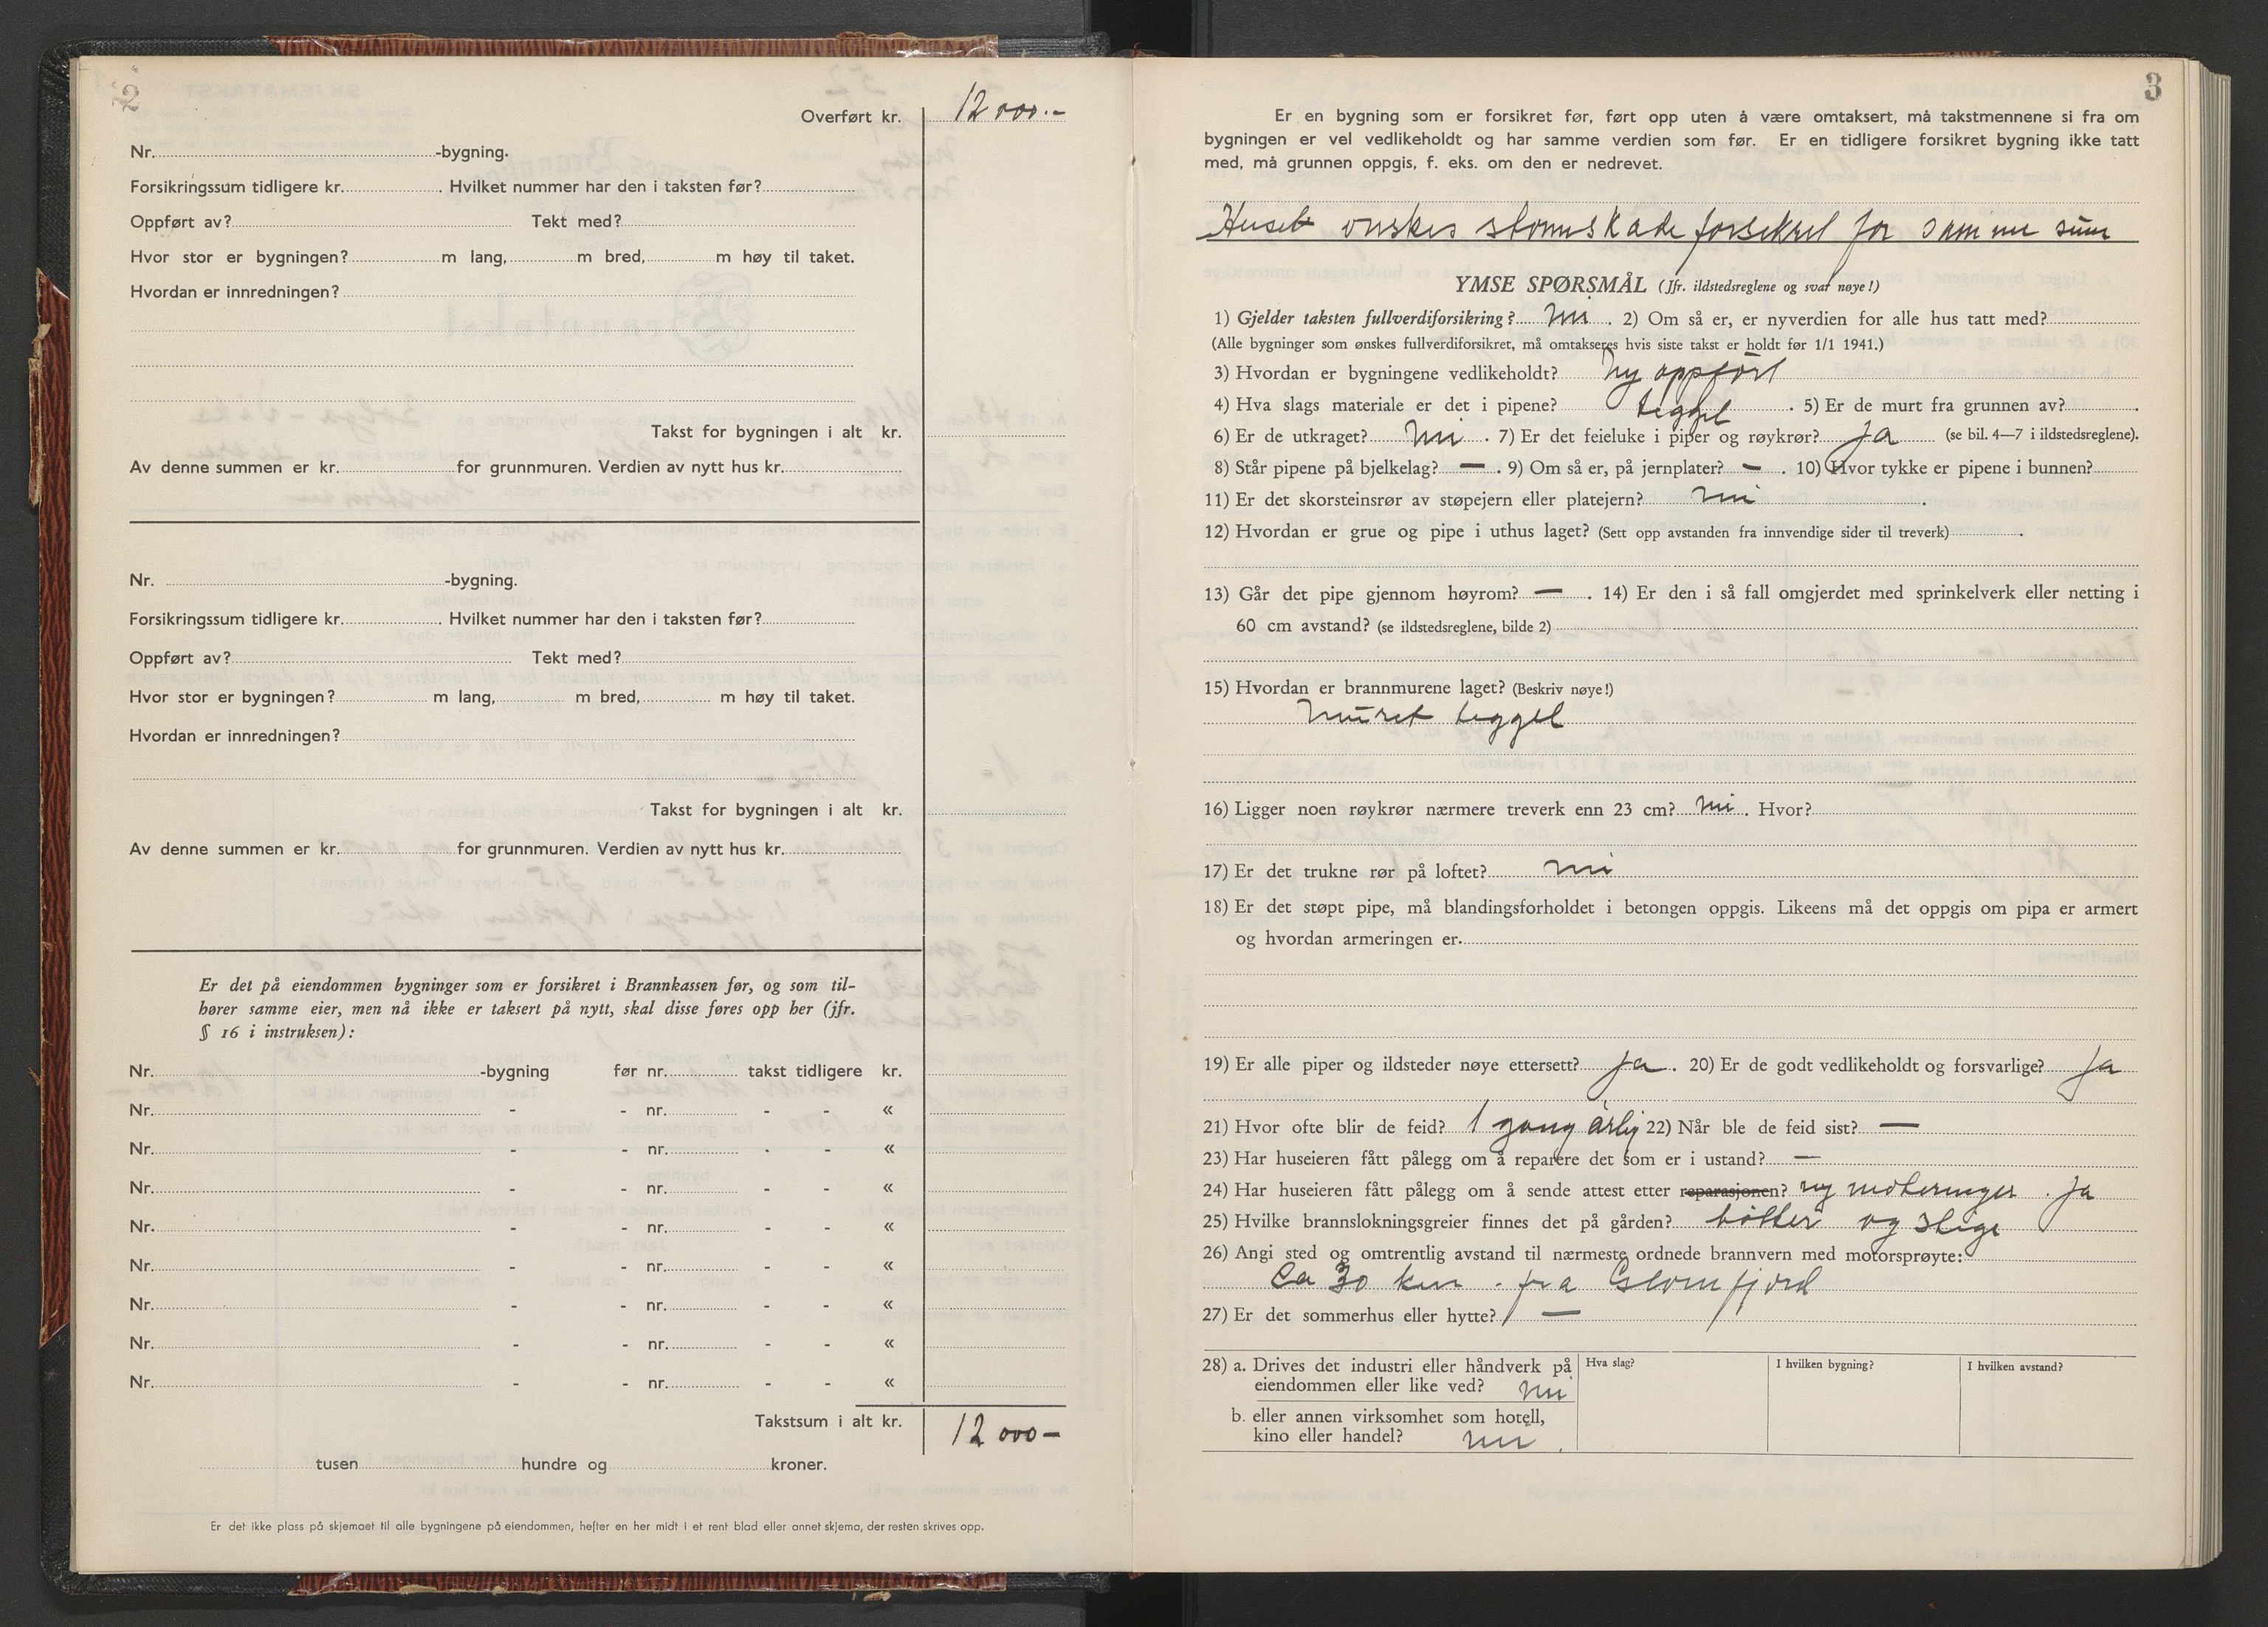 2
Overført kr. 12 000.-
Nr. -bygning.
Forsikringssum tidligere kr. . Hvilket nummer har den i taksten før?
Oppført av? Tekt med?
Hvor stor er bygningen? m lang, m bred, m høy til taket.
Hvordan er innredningen?
Takst for bygningen i alt kr.
Av denne summen er kr. for grunnmuren. Verdien av nytt hus kr.
Nr. -bygning.
Forsikringssum tidligere kr. . Hvilket nummer har den i taksten før?
Oppført av? Tekt med?
Hvor stor er bygningen? m lang, m bred, m høy til taket.
Hvordan er innredningen?
Takst for bygningen i alt kr.
Av denne summen er kr. for grunnmuren. Verdien av nytt hus kr.
Er det på eiendommen bygninger som er forsikret i Brannkassen før, og som til-
hører samme eier, men nå ikke er taksert på nytt, skal disse føres opp her (jfr.
§ 16 i instruksen):
Nr. -bygning før nr. takst tidligere kr.
Nr. - - nr. - - «
Nr. - - nr. - - «
Nr. - - nr. - - «
Nr. - - nr. - - «
Nr. - - nr. - - «
Nr. - - nr. - - «
Nr. - - nr. - - «
Nr. - - nr. - - «
Takstsum i alt kr. 12 000 -
tusen hundre og kroner.
Er det ikke plass på skjemaet til alle bygningene på eiendommen, hefter en her midt i et rent blad eller annet skjema, der resten skrives opp.
3
Er en bygning som er forsikret før, ført opp uten å være omtaksert, må takstmennene si fra om
bygningen er vel vedlikeholdt og har samme verdien som før. Er en tidligere forsikret bygning ikke tatt
med, må grunnen oppgis, f. eks. om den er nedrevet.
Huset ønskes stormskade forsikret for samme sum
YMSE SPØRSMÅL (Jfr. ildstedsreglene og svar nøye!)
1) Gjelder taksten fullverdiforsikring? nei . 2) Om så er, er nyverdien for alle hus tatt med?
(Alle bygninger som ønskes fullverdiforsikret, må omtakseres hvis siste takst er holdt før 1/1 1941.)
3) Hvordan er bygningene vedlikeholdt? ny oppført
4) Hva slags materiale er det i pipene? teggel . 5) Er de murt fra grunnen av? .
6) Er de utkraget? nei . 7) Er det feieluke i piper og røykrør? ja (se bil. 4—7 i ildstedsreglene).
8) Står pipene på bjelkelag? — . 9) Om så er, på jernplater? - . 10) Hvor tykke er pipene i bunnen?
11) Er det skorsteinsrør av støpejern eller platejern? nei .
12) Hvordan er grue og pipe i uthus laget? (Sett opp avstanden fra innvendige sider til treverk) .
13) Går det pipe gjennom høyrom? — . 14) Er den i så fall omgjerdet med sprinkelverk eller netting i
60 cm avstand? (se ildstedsreglene, bilde 2)
15) Hvordan er brannmurene laget? (Beskriv nøye!)
Muret teggel
16) Ligger noen røykrør nærmere treverk enn 23 cm? nei . Hvor?
17) Er det trukne rør på loftet? nei
18) Er det støpt pipe, må blandingsforholdet i betongen oppgis. Likeens må det oppgis om pipa er armert
og hvordan armeringen er.
19) Er alle piper og ildsteder nøye ettersett? ja . 20) Er de godt vedlikeholdt og forsvarlige? ja
21) Hvor ofte blir de feid? 1 gang årlig 22) Når ble de feid sist? —
23) Har huseieren fått pålegg om å reparere det som er i ustand? —
24) Har huseieren fått pålegg om å sende attest etter reparasjonen? ny monteringer . ja
25) Hvilke brannslokningsgreier finnes det på gården? bøtter og stige
26) Angi sted og omtrentlig avstand til nærmeste ordnede brannvern med motorsprøyte:
Ca 30 km . fra Glomfjord
27) Er det sommerhus eller hytte? —
28) a. Drives det industri eller håndverk på Hva slag? I hvilken bygning? I hvilken avstand?
eiendommen eller like ved? nei
b. eller annen virksomhet som hotell,
kino eller handel? nei .